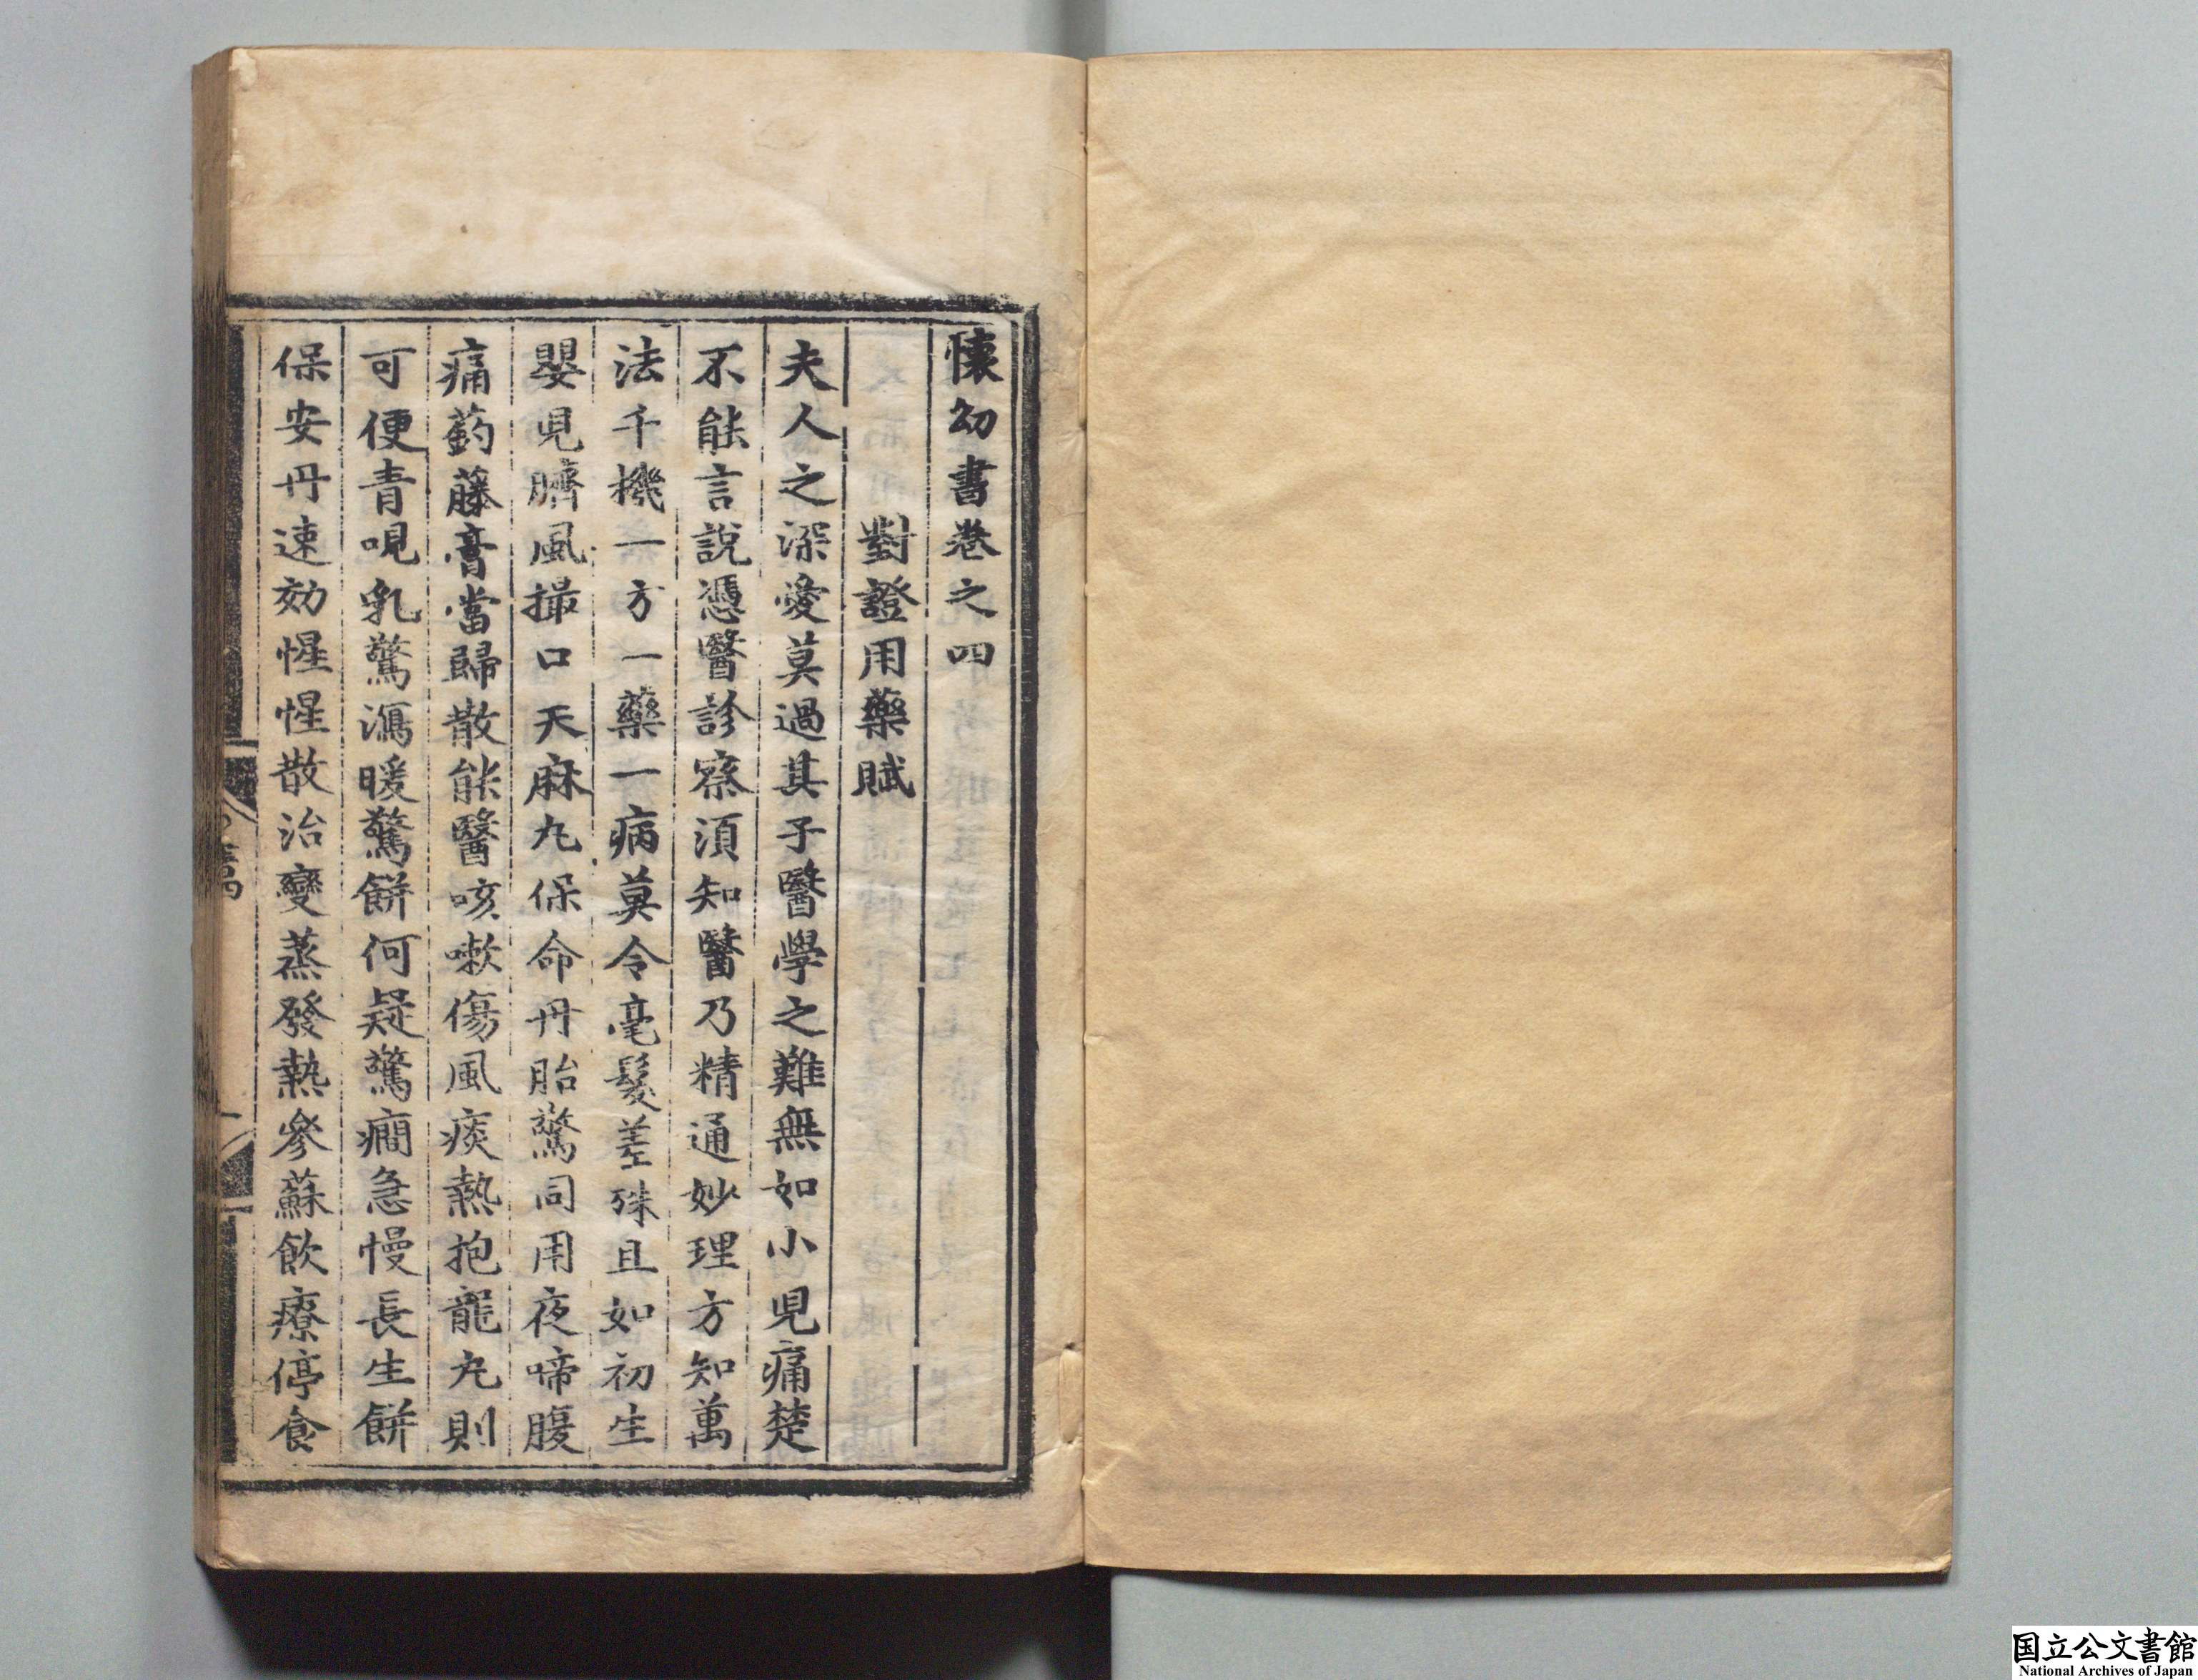 懐幼書卷之四
對證用藥賦
夫人之深愛莫過其子醫學之難無如小兒痛楚
不能言說憑醫診察湏知醫乃精通妙理方知萬
法千機一方一藥一病莫令毫髮差殊且如初生
嬰兒臍風撮口天麻丸保命丹胎驚同用夜啼腹
痛藭藤膏當歸散能醫咳嗽傷風痰熱抱龍丸則
可便青哯乳驚瀉暖驚餅何疑驚癇急慢長生餅
保安丹速効惺惺散治變蒸發熱參蘇飲療停食
国立公文書館
National Archives of Japan